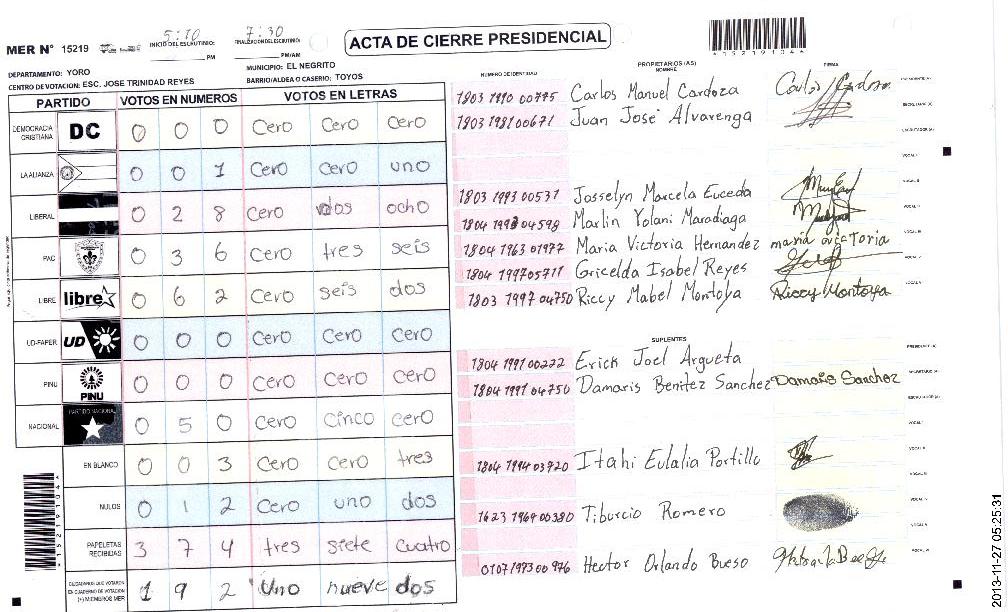 5:10 7:30
MER Nº 15219 INICIO DEL ESCRUTINIO: PM FINALIZACION DEL ESCRUTINIO: PM/AM
ACTA DE CIERRE PRESIDENCIAL
DEPARTAMENTO: YORO MUNICIPIO: EL NEGRITO
CENTRO DE VOTACION: ESC. JOSE TRINIDAD REYES BARRIO/ALDEA O CASERIO: TOYOS
PARTIDO VOTOS EN NUMEROS VOTOS EN LETRAS
DEMOCRACIA CRISTIANA DC 0 0 0 Cero Cero Cero
LA ALIANZA 0 0 1 Cero Cero uno
LIBERAL 0 2 8 Cero dos ocho
PAC 0 3 6 Cero tres seis
LIBRE libre 0 6 2 Cero seis dos
UD-FAPER UD 0 0 0 Cero Cero Cero
PINU PINU 0 0 0 Cero Cero Cero
NACIONAL PARTIDO NACIONAL 0 5 0 Cero Cinco cero
EN BLANCO 0 0 3 Cero Cero tres
NULOS 0 1 2 Cero uno dos
PAPELETAS RECIBIDAS 3 7 4 tres siete cuatro
CIUDADANOS QUE VOTARON EN CUADERNO DE VOTACION (+) MIEMBROS MER 1 9 2 Uno nueve dos
NUMERO DE IDENTIDAD PROPIETARIOS (AS) NOMBRE FIRMA
1803 1990 00775 Carlos Manuel Cardoza Carlos Cardoza
1803 1981 00671 Juan José Alvarenga
1803 1993 00531 Josselyn Marcela Euceda
1804 1993 04598 Marlin Yolani Maradiaga
1804 1963 01977 Maria Victoria Hernandez maria victoria
1804 1997 05711 Gricelda Isabel Reyes
1803 1997 04750 Riccy Mabel Montoya Riccy Montoya
SUPLENTES
1804 1991 00222 Erick Joel Argueta
1804 1991 04750 Damaris Benitez Sanchez Damaris Sanchez
1804 1994 03720 Itahi Eulalia Portillo
1623 1964 00380 Tiburcio Romero
0107 1993 00976 Hector Orlando Bueso
2013-11-27 05:25:31